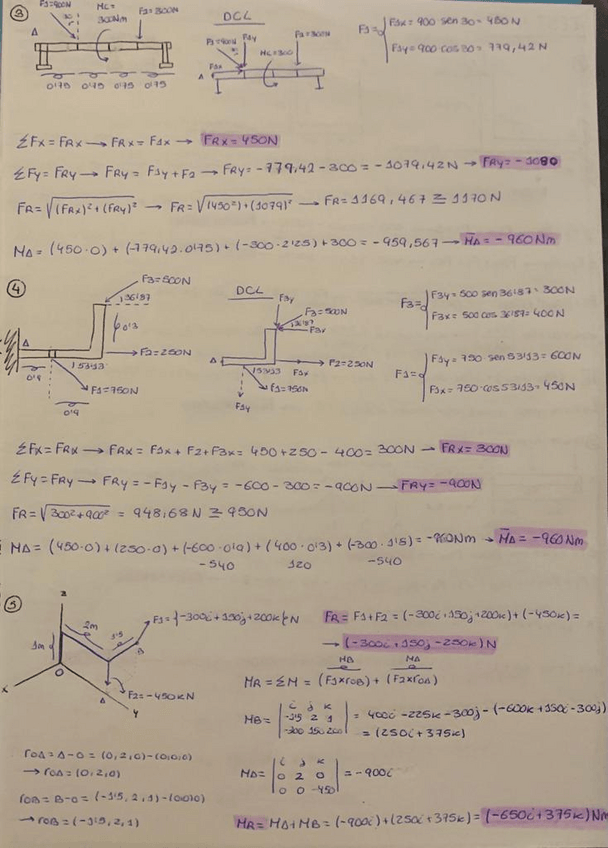 ③ F1=900N 30° Mc= 300Nm F2=300N
A
0'75 0'75 0'75 0'75
DCL
F1=900N F1y Mc=300 F2=300N
F1x
A
F1= { F1x = 900 sen 30 = 450 N
F1y = 900 cos 30 = 779,42 N
ΣFx = FRx → FRx = F1x → FRx = 450N
ΣFy = FRy → FRy = F1y + F2 → FRy = -779,42 - 300 = -1079,42N → FRy = -1080
FR = √(FRx)²+(FRy)² → FR = √(450²)+(1079)² → FR = 1169,467 ≅ 1170 N
MA = (450·0) + (-779,42·0'75) + (-300·2'25) + 300 = -959,567 → MA = -960 Nm
④ F3=500N
36'87
A 0'3
F2=250N
0'9 53'13
F1=750N
0'9
DCL
F3y
F3=500N
36'87 F3x
A F2=250N
53'13 F1x
F1=750N
F1y
F3= { F3y = 500 sen 36'87 = 300N
F3x = 500 cos 36'87 = 400N
F1= { F1y = 750·sen 53'13 = 600N
F1x = 750·cos 53'13 = 450N
ΣFx = FRx → FRx = F1x + F2 + F3x = 450 + 250 - 400 = 300N → FRx = 300N
ΣFy = FRy → FRy = -F1y - F3y = -600 - 300 = -900N → FRy = -900N
FR = √300²+900² = 948,68N ≅ 950N
MA = (450·0) + (250·0) + (-600·0'9) + (400·0'3) + (-300·1'8) = -960Nm → MA = -960Nm
-540 120 -540
⑤ z
2m 1'5 F1 = {-300i + 150j + 200k} N
1m B
O
F2 = -450k N
x A
y
FR = F1 + F2 = (-300i + 150j + 200k) + (-450k) =
→ (-300i + 150j - 250k) N
MB MA
MR = ΣM = (F1×rOB) + (F2×rOA)
MB = | i j k | = 400i - 225k - 300j - (-600k + 150i - 300j)
-1'5 2 1
-300 150 200 = (250i + 375k)
rOA = A - O = (0,2,0) - (0,0,0)
→ rOA = (0,2,0)
MA = | i j k | = -900i
0 2 0
0 0 -450
rOB = B - O = (-1'5, 2, 1) - (0,0,0)
→ rOB = (-1'5, 2, 1)
MR = MA + MB = (-900i) + (250i + 375k) = (-650i + 375k) Nm